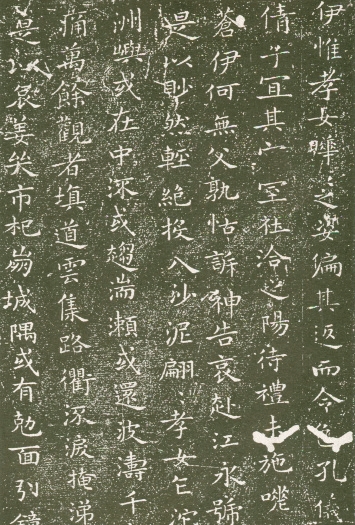 伊惟孝女曄之姿偏其返而令色孔儀
倩子宜其家室在洽之陽待禮未施嗟
蒼伊何無父孰怙訴神告哀赴江永號
是以眇然輕絕投入沙泥翩孝女乍沉
洲嶼或在中流或趨湍瀨或還波濤千
痛萬餘觀者填道雲集路衢流淚掩涕
是以哀姜哭市杞崩城隅或有勀面引鏡